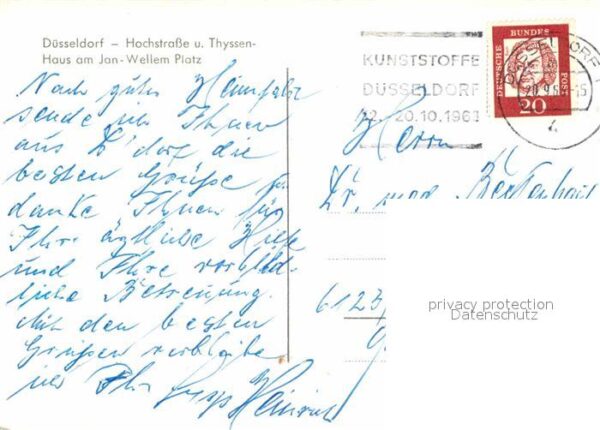 Düsseldorf – Hochstraße u. Thyssen-
Haus am Jan-Wellem Platz
Nach guter Heimfahrt
sende ich Ihnen
aus D'dorf die
besten Grüße u.
danke Ihnen für
Ihre ärztliche Hilfe
und Ihre vorbild-
liche Betreuung.
Mit den besten
Grüßen verbleibe
ich Ihr
Heinrich
KUNSTSTOFFE
DÜSSELDORF
12. - 20.10.1963
DEUTSCHE BUNDESPOST
20
DÜSSELDORF
Herrn
Dr. med.
6123
privacy protection
Datenschutz